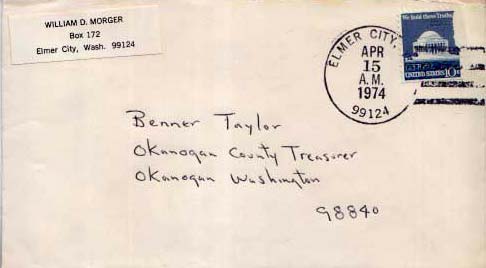 WILLIAM D. MORGER
Box 172
Elmer City, Wash. 99124
ELMER CITY,
APR
15
A.M.
1974
99124
We hold these Truths
UNITED STATES 10c
Benner Taylor
Okanogan County Treasurer
Okanogan Washington
98840